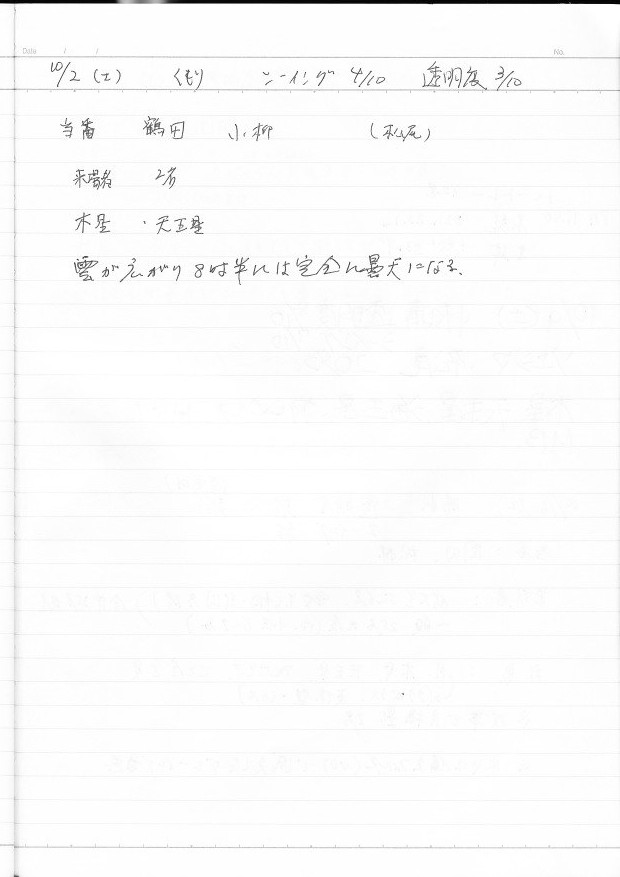 Date / / No.
10/2 (土) くもり シーイング 4/10 透明度 3/10
当番 鶴田 小柳 (松尾)
来場者 2名
木星・天王星
雲が広がり 8時半には完全に曇天になる。